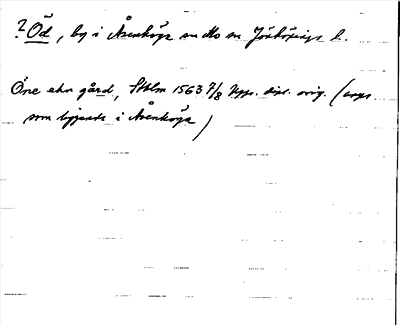 ? Öd, by i Åsenhöga sn Mo hd Jönköpings l.
Öne ehn gård, Sthlm 1563 7/8 Upps. dipl. orig. (anges
som liggande i Åsenhöga)